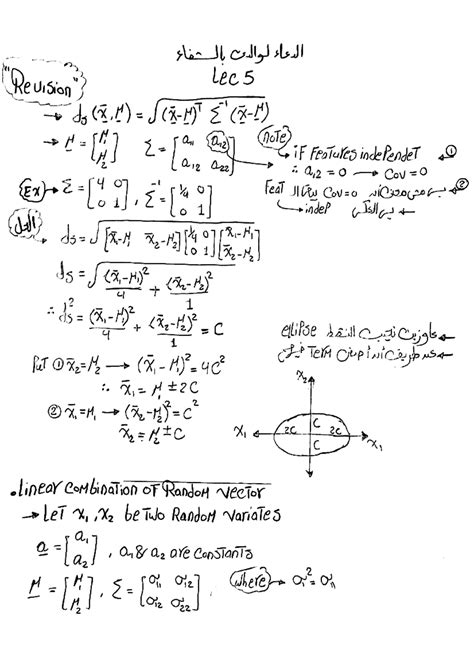 الدعاء لوالدتى بالشفاء
Lec 5
"Revision"
→ ds (x̄, M) = √((x̄-M)ᵀ Σ⁻¹ (x̄-M))
→ M = [M₁ M₂] Σ = [a₁₁ a₁₂ a₁₂ a₂₂]
note
→ iF Features indePendet ①
∴ a₁₂ = 0 → Cov = 0
Feat Cov=0 ②
→ indep
Ex → Σ = [4 0 0 1], Σ⁻¹ = [1/4 0 0 1]
الحل
ds = √([x̄₁-M₁ x̄₂-M₂][1/4 0 0 1][x̄₁-M₁ x̄₂-M₂])
ds = √((x̄₁-M₁)²/4 + (x̄₂-M₂)²/1)
∴ ds² = (x̄₁-M₁)²/4 + (x̄₂-M₂)²/1 = C
ellipse النقط
Term
Put ① x̄₂=M₂ → (x̄₁-M₁)² = 4C²
∴ x̄₁ = M₁ ± 2C
② x̄₁=M₁ → (x̄₂-M₂)² = C²
x̄₂ = M₂ ± C
x₂
x₁ 2C C 2C x₁
C
• Linear Combination OF Random vector
→ Let x₁, x₂ be two Random variates
a = [a₁ a₂], a₁ & a₂ are constants
M = [M₁ M₂], Σ = [σ₁₁ σ₁₂ σ₁₂ σ₂₂], where → σ₁² = σ₁₁